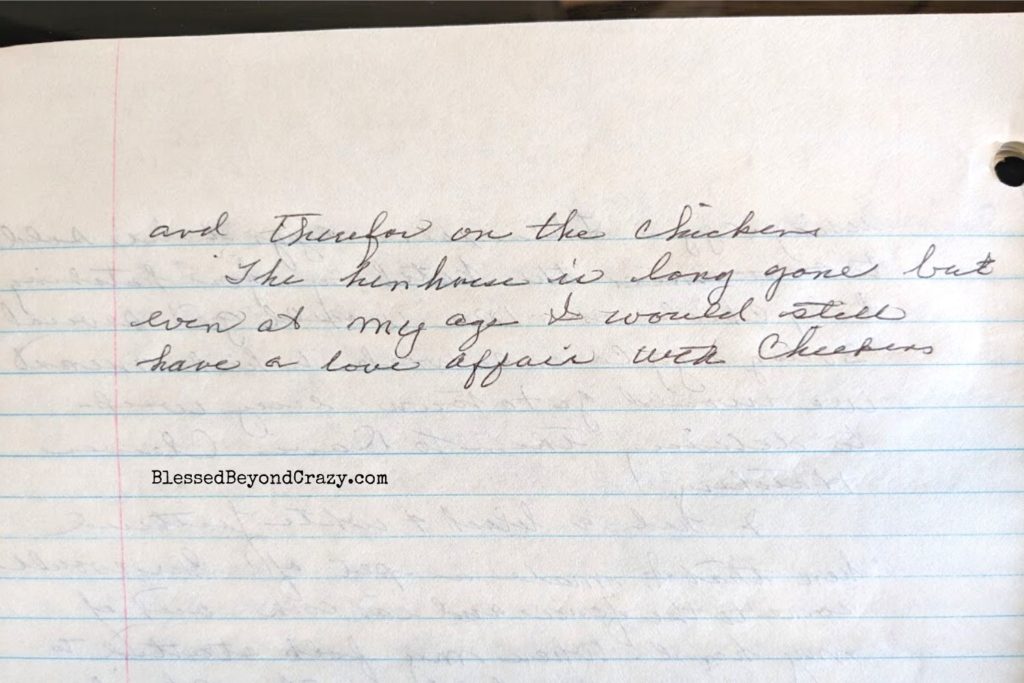 and therefor on the chickens
The henhouse is long gone but
even at my age I would still
have a love affair with Chickens
BlessedBeyondCrazy.com